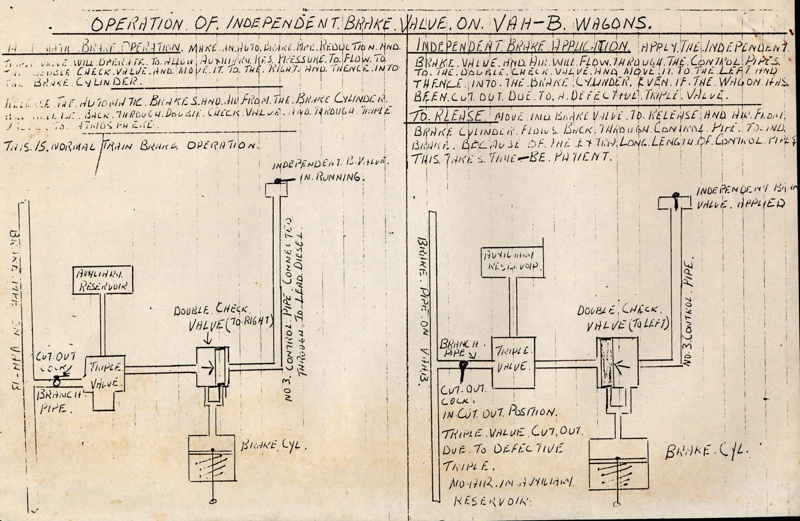 OPERATION OF INDEPENDENT BRAKE VALVE ON VAH-B WAGONS.
BRAKE OPERATION. MAKE AN AUTO BRAKE PIPE REDUCTION AND
VALVE WILL OPERATE TO ALLOW AUXILIARY RES. PRESSURE TO FLOW TO
DOUBLE CHECK VALVE AND MOVE IT TO THE RIGHT AND THENCE INTO
THE BRAKE CYLINDER.
RELEASE THE AUTOMATIC BRAKES AND AIR FROM THE BRAKE CYLINDER
BACK THROUGH DOUBLE CHECK VALVE AND THROUGH TRIPLE
TO ATMOSPHERE.
THIS IS NORMAL TRAIN BRAKE OPERATION.
INDEPENDENT B VALVE
IN RUNNING.
BRAKE PIPE ON VAH-B
AUXILIARY
RESERVOIR
DOUBLE CHECK
VALVE (TO RIGHT)
CUT OUT
COCK
TRIPLE
VALVE
BRANCH
PIPE.
NO 3. CONTROL PIPE CONNECTED
THROUGH TO LEAD DIESEL.
BRAKE CYL.
INDEPENDENT BRAKE APPLICATION APPLY THE INDEPENDENT
BRAKE VALVE AND AIR WILL FLOW THROUGH THE CONTROL PIPES
TO THE DOUBLE CHECK VALVE AND MOVE IT TO THE LEFT AND
THENCE INTO THE BRAKE CYLINDER EVEN IF THE WAGON HAS
BEEN CUT OUT DUE TO A DEFECTIVE TRIPLE VALVE.
TO RLEASE MOVE IND BRAKE VALVE TO RELEASE AND AIR FROM
BRAKE CYLINDER FLOWS BACK THROUGH CONTROL PIPE TO IND
BRAKE. BECAUSE OF THE EXTRA LONG LENGTH OF CONTROL PIPES
THIS TAKES TIME - BE PATIENT.
INDEPENDENT BRAKE
VALVE APPLIED
BRAKE PIPE ON VAHB.
AUXILIARY
RESERVOIR.
DOUBLE CHECK
VALVE (TO LEFT)
BRANCH
PIPE
TRIPLE
VALVE.
NO 3. CONTROL PIPE.
CUT OUT
COCK.
IN CUT OUT POSITION.
TRIPLE VALVE CUT OUT
DUE TO DEFECTIVE
TRIPLE.
NO AIR IN AUXILIARY
RESERVOIR.
BRAKE CYL.